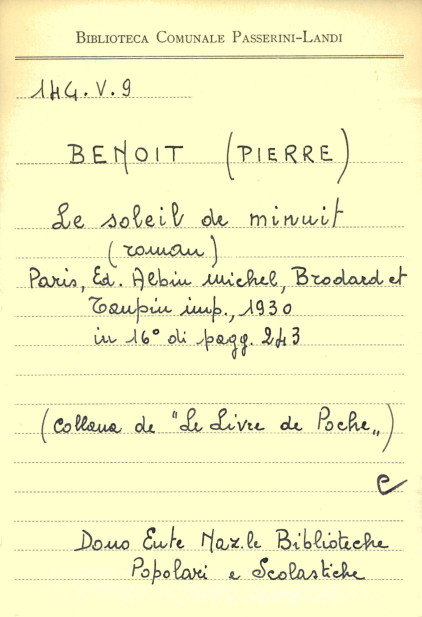 BIBLIOTECA COMUNALE PASSERINI-LANDI
144.V.9
BENOIT (PIERRE)
Le soleil de minuit
(roman)
Paris, Ed. Albin Michel, Brodard et
Taupin imp., 1930
in 16° di pagg. 243
(collana de "Le Livre de Poche„)
e
Dono Ente Naz.le Biblioteche
Popolari e Scolastiche